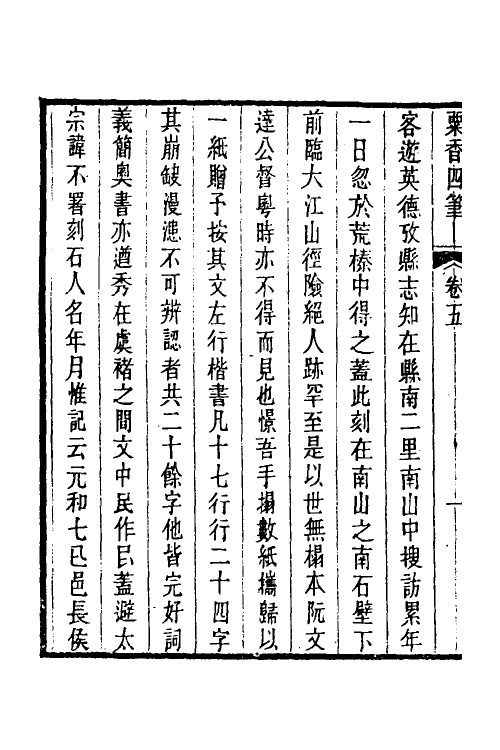 粟香四筆
卷五
一
客遊英德攷縣志知在縣南二里南山中搜訪累年
一日忽於荒榛中得之蓋此刻在南山之南石壁下
前臨大江山徑險絕人跡罕至是以世無榻本阮文
達公督粵時亦不得而見也憬吾手搨數紙攜歸以
一紙贈予按其文左行楷書凡十七行行二十四字
其崩缺漫漶不可辨認者共二十餘字他皆完好詞
義簡奧書亦遒秀在虞褚之間文中民作㞪蓋避太
宗諱不署刻石人名年月惟記云元和七㔾邑長侯